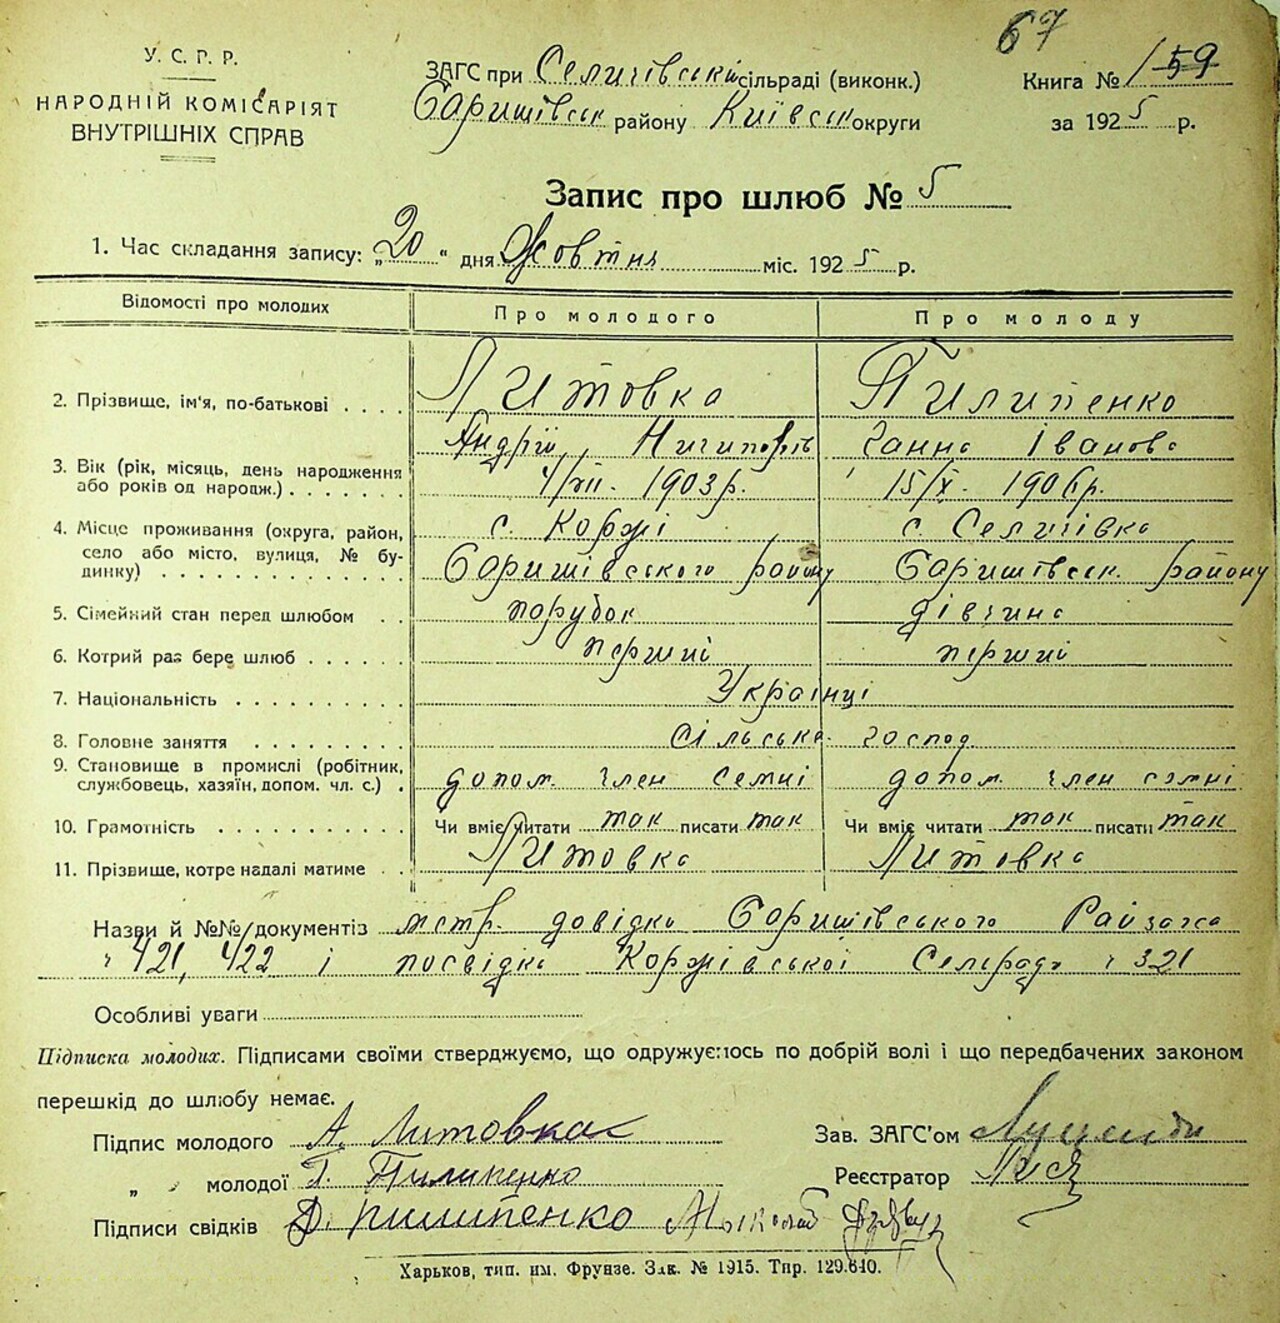 67
У. С. Р. Р.
НАРОДНІЙ КОМІСАРІЯТ
ВНУТРІШНІХ СПРАВ
ЗАГС при Селичівській сільраді (виконк.)
Баришівськ району Київськ округи
Книга № 159
за 1925 р.
Запис про шлюб № 5
1. Час складання запису: „20“ дня Жовтня міс. 1925 р.
Відомості про молодих
Про молодого
Про молоду
2. Прізвище, ім'я, по-батькові
Литовка
Андрій Ничипорів
Пилипенко
Ганна Іванова
3. Вік (рік, місяць, день народження
або років од народж.)
4/VII. 1903 р.
15/X. 1906 р.
4. Місце проживання (округа, район,
село або місто, вулиця, № бу-
динку)
с. Коржі
Баришівського району
с. Селичівка
Баришівськ. району
5. Сімейний стан перед шлюбом
парубок
дівчина
6. Котрий раз бере шлюб
перший
перший
7. Національність
Українці
8. Головне заняття
Сільська господ.
9. Становище в промислі (робітник,
службовець, хазяїн, допом. чл. с.)
допом. член семні
допом. член семні
10. Грамотність
Чи вміє читати так писати так
Чи вміє читати так писати так
11. Прізвище, котре надалі матиме
Литовка
Литовка
Назви й №№ документів метр. довідка Баришівського Райзагса
ч 421, 422 і посвідка Коржівської Сельради ч 321
Особливі уваги
Підписка молодих. Підписами своїми стверджуємо, що одружуємось по добрій волі і що передбачених законом
перешкід до шлюбу немає.
Підпис молодого А. Литовка
Зав. ЗАГС'ом
„ молодої Г. Пилипенко
Реєстратор
Підписи свідків Д. Пилипенко
Харьков, тип. им. Фрунзе. Зак. № 1915. Тир. 129.640.